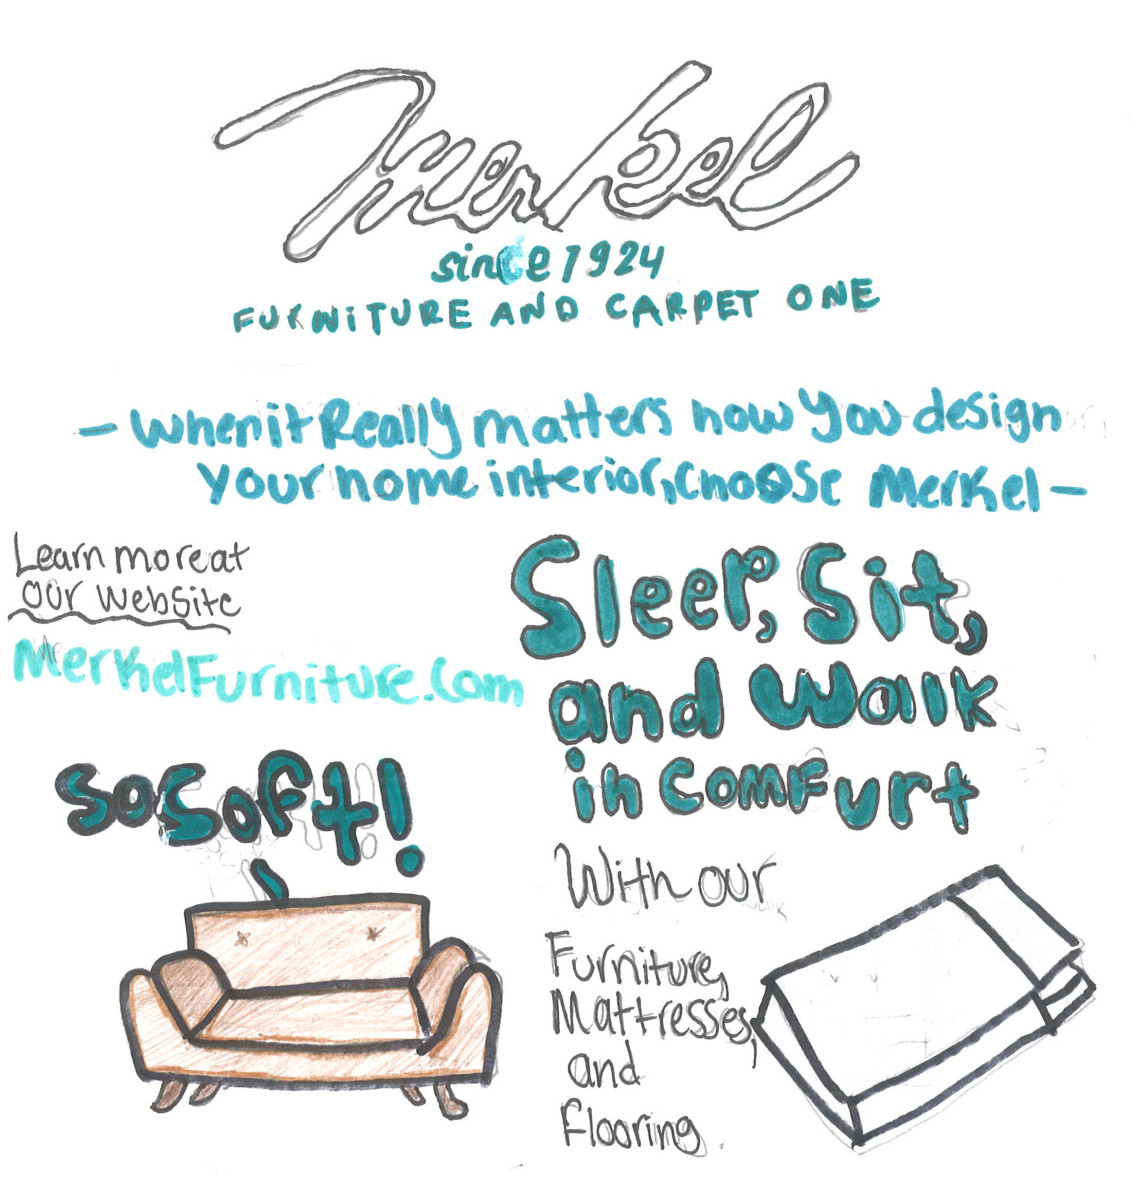 Merkel
since 1924
FURNITURE AND CARPET ONE
- when it Really matters how you design
your home interior, choose Merkel -
Learn more at
our website
MerkelFurniture.com
Sleep, Sit,
and walk
in comfurt
so soft!
With our
Furniture,
Mattresses,
and
flooring.